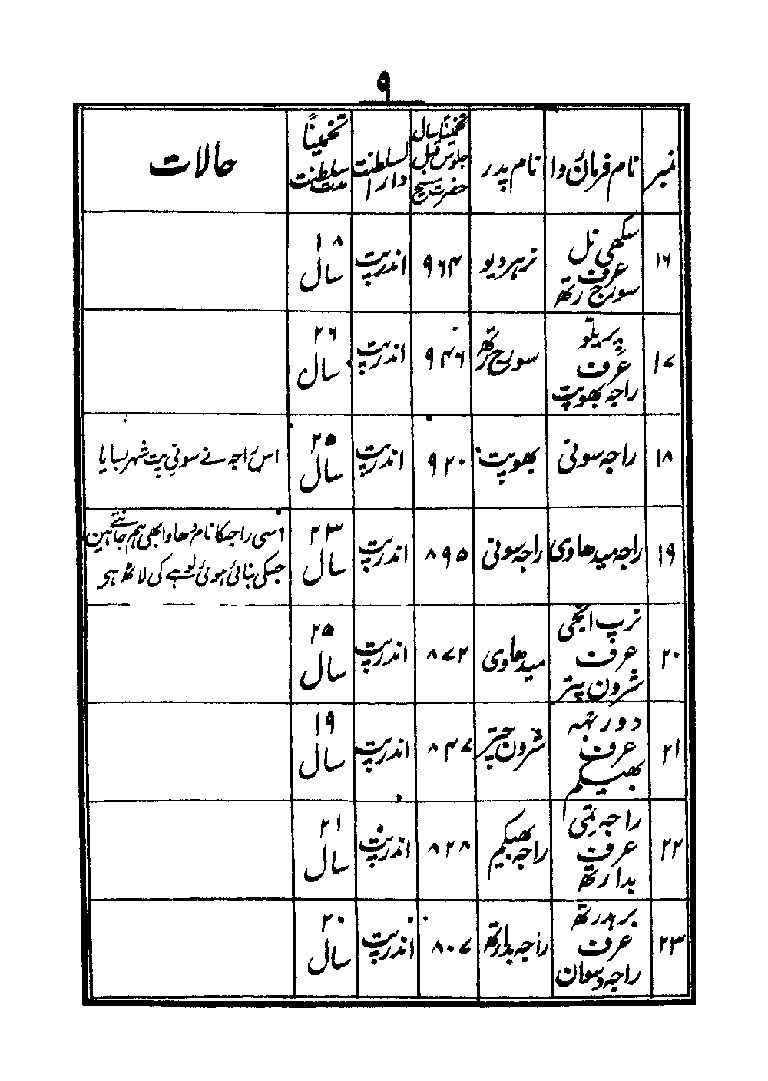 ۹
نمبر | نام فرمان روا | نام پدر | تخمیناً سال جلوس قبل حضرت مسیح | دار السلطنت | تخمیناً مدت سلطنت | حالات
۱۶ | سکھی نل عرف سورج رتھ | نرہر دیو | ۹۶۴ | اندرپت | ۱۸ سال
۱۷ | پریلو عرف راجہ بھوپت | سورج رتھ | ۹۴۶ | اندرپت | ۲۶ سال
۱۸ | راجہ سونی | بھوپت | ۹۲۰ | اندرپت | ۲۵ سال | اس راجہ نے سونی پت شہر بسایا
۱۹ | راجہ میدھاوی | راجہ سونی | ۸۹۵ | اندرپت | ۲۳ سال | اسی راجہ کا نام دھاوا بھی ہم جانتے ہین
جسکی بنائی ہوئی لوہے کی لاٹھ ہے
۲۰ | نرپ انجی عرف شرون چتر | میدھاوی | ۸۷۲ | اندرپت | ۲۵ سال
۲۱ | دوربہہ عرف بھیکم | شرون چتر | ۸۴۷ | اندرپت | ۱۹ سال
۲۲ | راجہ تمی عرف بدارتھ | راجہ بھیکم | ۸۲۸ | اندرپت | ۲۱ سال
۲۳ | برہدرتھ عرف راجہ دسوان | راجہ بدارتھ | ۸۰۷ | اندرپت | ۲۰ سال